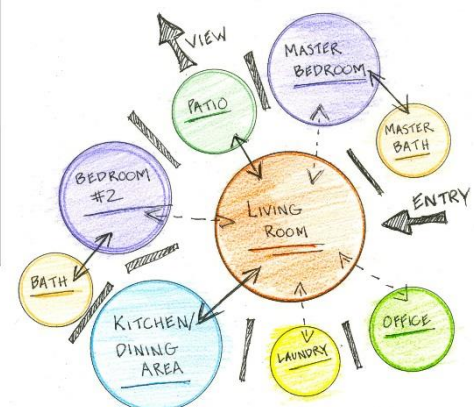 VIEW
MASTER
BEDROOM
PATIO
MASTER
BATH
BEDROOM
#2
LIVING
ROOM
ENTRY
BATH
KITCHEN/
DINING
AREA
LAUNDRY
OFFICE